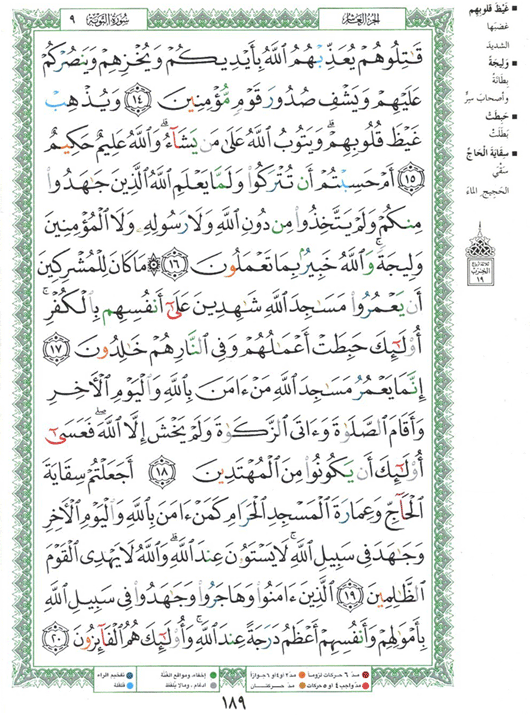 سُورَةُ التَّوْبَةِ ٩
الجزء العاشر
قَٰتِلُوهُمْ يُعَذِّبْهُمُ ٱللَّهُ بِأَيْدِيكُمْ وَيُخْزِهِمْ وَيَنصُرْكُمْ
عَلَيْهِمْ وَيَشْفِ صُدُورَ قَوْمٍ مُّؤْمِنِينَ ١٤ وَيُذْهِبْ
غَيْظَ قُلُوبِهِمْ ۗ وَيَتُوبُ ٱللَّهُ عَلَىٰ مَن يَشَآءُ ۗ وَٱللَّهُ عَلِيمٌ حَكِيمٌ
١٥ أَمْ حَسِبْتُمْ أَن تُتْرَكُوا۟ وَلَمَّا يَعْلَمِ ٱللَّهُ ٱلَّذِينَ جَٰهَدُوا۟
مِنكُمْ وَلَمْ يَتَّخِذُوا۟ مِن دُونِ ٱللَّهِ وَلَا رَسُولِهِۦ وَلَا ٱلْمُؤْمِنِينَ
وَلِيجَةً ۚ وَٱللَّهُ خَبِيرٌۢ بِمَا تَعْمَلُونَ ١٦ ۞ مَا كَانَ لِلْمُشْرِكِينَ
أَن يَعْمُرُوا۟ مَسَٰجِدَ ٱللَّهِ شَٰهِدِينَ عَلَىٰٓ أَنفُسِهِم بِٱلْكُفْرِ ۚ
أُو۟لَٰٓئِكَ حَبِطَتْ أَعْمَٰلُهُمْ وَفِى ٱلنَّارِ هُمْ خَٰلِدُونَ ١٧
إِنَّمَا يَعْمُرُ مَسَٰجِدَ ٱللَّهِ مَنْ ءَامَنَ بِٱللَّهِ وَٱلْيَوْمِ ٱلْءَاخِرِ
وَأَقَامَ ٱلصَّلَوٰةَ وَءَاتَى ٱلزَّكَوٰةَ وَلَمْ يَخْشَ إِلَّا ٱللَّهَ ۖ فَعَسَىٰٓ
أُو۟لَٰٓئِكَ أَن يَكُونُوا۟ مِنَ ٱلْمُهْتَدِينَ ١٨ ۞ أَجَعَلْتُمْ سِقَايَةَ
ٱلْحَآجِّ وَعِمَارَةَ ٱلْمَسْجِدِ ٱلْحَرَامِ كَمَنْ ءَامَنَ بِٱللَّهِ وَٱلْيَوْمِ ٱلْءَاخِرِ
وَجَٰهَدَ فِى سَبِيلِ ٱللَّهِ ۚ لَا يَسْتَوُۥنَ عِندَ ٱللَّهِ ۗ وَٱللَّهُ لَا يَهْدِى ٱلْقَوْمَ
ٱلظَّٰلِمِينَ ١٩ ٱلَّذِينَ ءَامَنُوا۟ وَهَاجَرُوا۟ وَجَٰهَدُوا۟ فِى سَبِيلِ ٱللَّهِ
بِأَمْوَٰلِهِمْ وَأَنفُسِهِمْ أَعْظَمُ دَرَجَةً عِندَ ٱللَّهِ ۚ وَأُو۟لَٰٓئِكَ هُمُ ٱلْفَآئِزُونَ ٢٠
غَيْظَ قُلُوبِهِم
غضبها
الشديد
وَلِيجَةً
بطانة
وأصحاب سرّ
حَبِطَتْ
بطلت
سِقَايَةَ الْحَاجِّ
سقي
الحجيج الماء
ثلاثة أرباع
الحزب
١٩
مدّ ٦ حركات لزوماً
مدّ ٢ أو ٤ أو ٦ جوازاً
إخفاء، ومواقع الغنّة
تفخيم الراء
مدّ واجب ٤ أو ٥ حركات
مدّ حركتان
إدغام، ومالا يلفظ
قلقلة
١٨٩